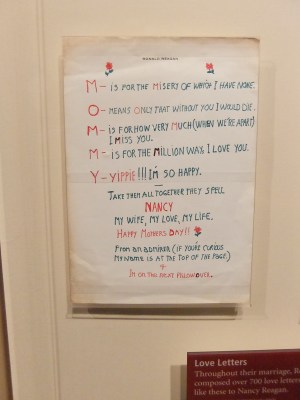 RONALD REAGAN
M- IS FOR THE MISERY OF WHICH I HAVE NONE.
O- MEANS ONLY THAT WITHOUT YOU I WOULD DIE.
M- IS FOR HOW VERY MUCH (WHEN WE'RE APART)
I MISS YOU.
M- IS FOR THE MILLION WAYS I LOVE YOU.
Y- YIPPIE!!! I'M SO HAPPY.
TAKE THEM ALL TOGETHER THEY SPELL
NANCY
MY WIFE, MY LOVE, MY LIFE.
HAPPY MOTHERS DAY!!
FROM AN ADMIRER (IF YOU'RE CURIOUS
MY NAME IS AT THE TOP OF THE PAGE.)
+
I'M ON THE NEXT PILLOW OVER.
Love Letters
Throughout their marriage,
composed over 700 love letters
like these to Nancy Reagan.